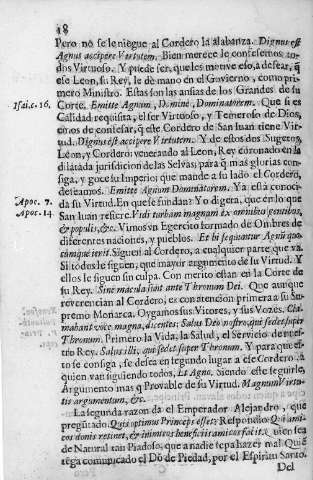 18
Pero no se le niegue al Cordero la alabanza. Dignus est
Agnus accipere Virtutem. Bien merece le confessemos to-
dos Virtuoso. Y puede ser, que les mueve eso, a desear, q̃
ese Leon, su Rey, le dè mano en el Govierno, como pri-
mero Ministro. Estas son las ansias de los Grandes de su
Isai. c. 16.
Corte. Emitte Agnum, Domine, Dominatorem. Que si es
Calidad requisita, el ser Virtuoso, y Temeroso de Dios,
emos de confesar, q̃ este Cordero de San Iuan tiene Vir-
tud. Dignus est accipere Virtutem. Y de estos dos Sugetos,
Leon, y Cordero venerando al Leon, Rey coronado en la
dilatada jurisdicion de las Selvas; para q̃ mas glorias con-
siga, y goce su Imperio; que mande a su lado el Cordero,
deseamos. Emitte Agnum Dominatorem. Ya està conoci-
Apoc. 7.
da su Virtud. En que se funda? Yo digera, que en lo que
Apoc. 14.
San Iuan refiere. Vidi turbam magnam ex omnibus gentibus,
& populis, &c. Vimos vn Egercito formado de Ombres de
diferentes naciones, y pueblos. Et hi sequuntur Agnũ quo-
cumque ierit. Siguen al Cordero, a cualquier parte que va.
Si todos le siguen, que mayor argumento de su Virtud. Y
ellos le siguen sin culpa. Con merito estàn en la Corte de
su Rey. Sine macula sunt ante Thronum Dei. Que aunque
reverencian al Cordero, es con atencion primera a su Su-
premo Monarca. Oygamos sus Vitores, y sus Vozes. Cla-
mabant voce magna, dicentes; Salus Deo nostro, qui sedet super
Thronum. Primero la Vida, la Salud, el Servicio de nues-
tro Rey. Salus illi, qui sedet super Thronum. Y para que es-
to se consiga, se desea en segundo lugar a ese Cordero, à
quien van siguiendo todos, Et Agno. Siendo este seguirle,
Argumento mas q̃ Provable de su Virtud. Magnum Virtu-
tis argumentum, &c.
La segunda razon da el Emperador Alejandro, que
preguntado: Quis optimus Princeps esset? Respondiò: Qui ami-
cos donis retinet, & inimicos beneficiis amicos facit. Quien sea
de Natural tan Piadoso, que a nadie sepa hazer mal. Quiẽ
tega comunicado el Dõ de Piedad, por el Espiritu Santo.
Del